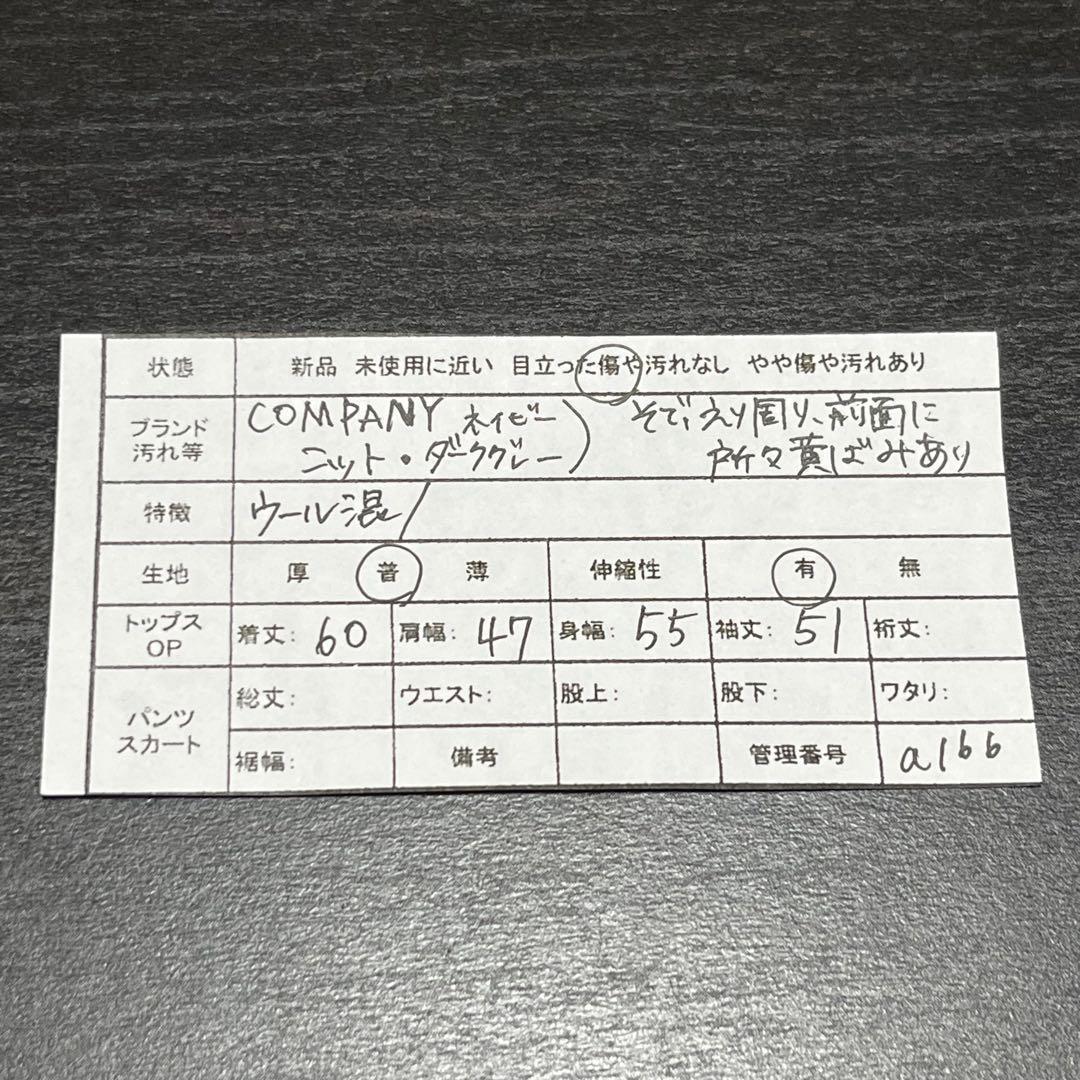 状態 新品 未使用に近い 目立った傷や汚れなし やや傷や汚れあり
ブランド
汚れ等
COMPANY ネイビー
ニット・ダークグレー)
そで、えり周り、前面に
所々黄ばみあり
特徴 ウール混/
生地 厚 普 薄 伸縮性 有 無
トップス
OP
着丈: 60 肩幅: 47 身幅: 55 袖丈: 51 裄丈:
パンツ
スカート
総丈: ウエスト: 股上: 股下: ワタリ:
裾幅: 備考 管理番号 a166